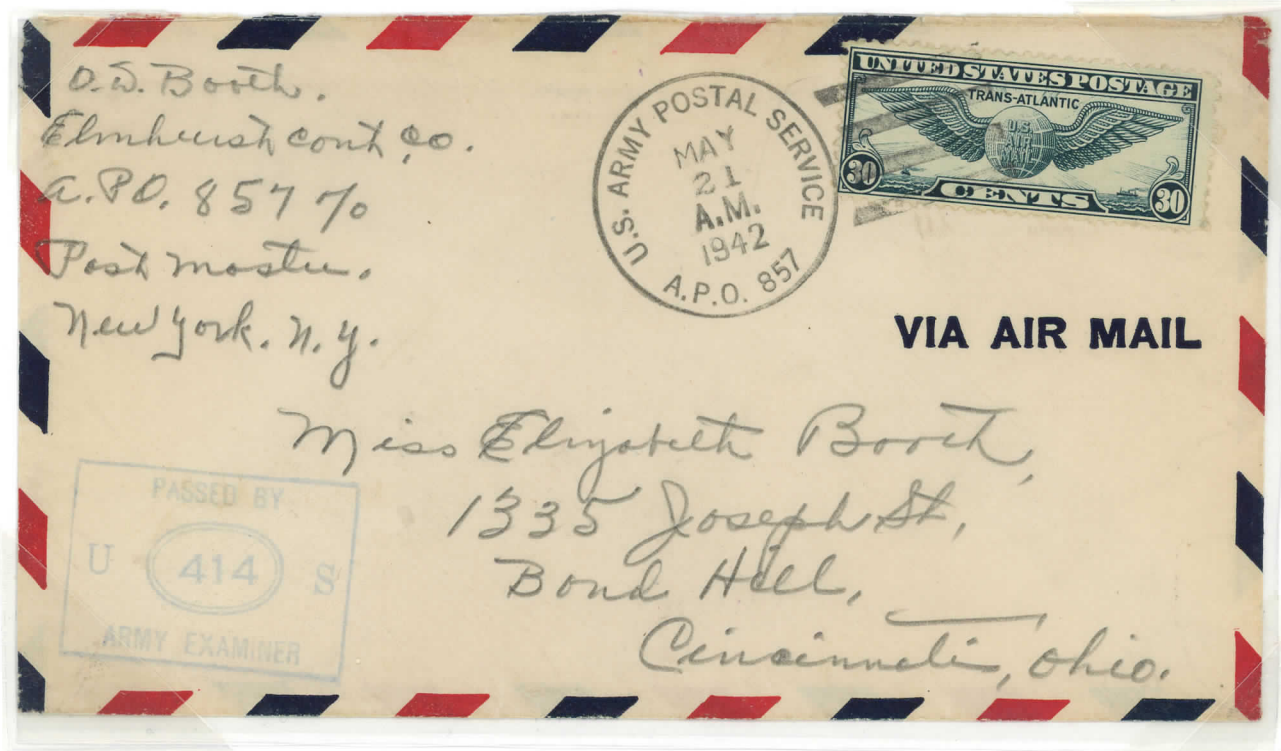 O.S. Booth.
Elmhurst Cont. Co.
A.P.O. 857 c/o
Post Master.
New York. N.Y.
U.S. ARMY POSTAL SERVICE
MAY
21
A.M.
1942
A.P.O. 857
UNITED STATES POSTAGE
TRANS-ATLANTIC
U.S.
AIR
MAIL
30 CENTS 30
VIA AIR MAIL
Miss Elizabeth Booth,
1335 Joseph St,
Bond Hill,
Cincinnati, Ohio.
PASSED BY
U 414 S
ARMY EXAMINER